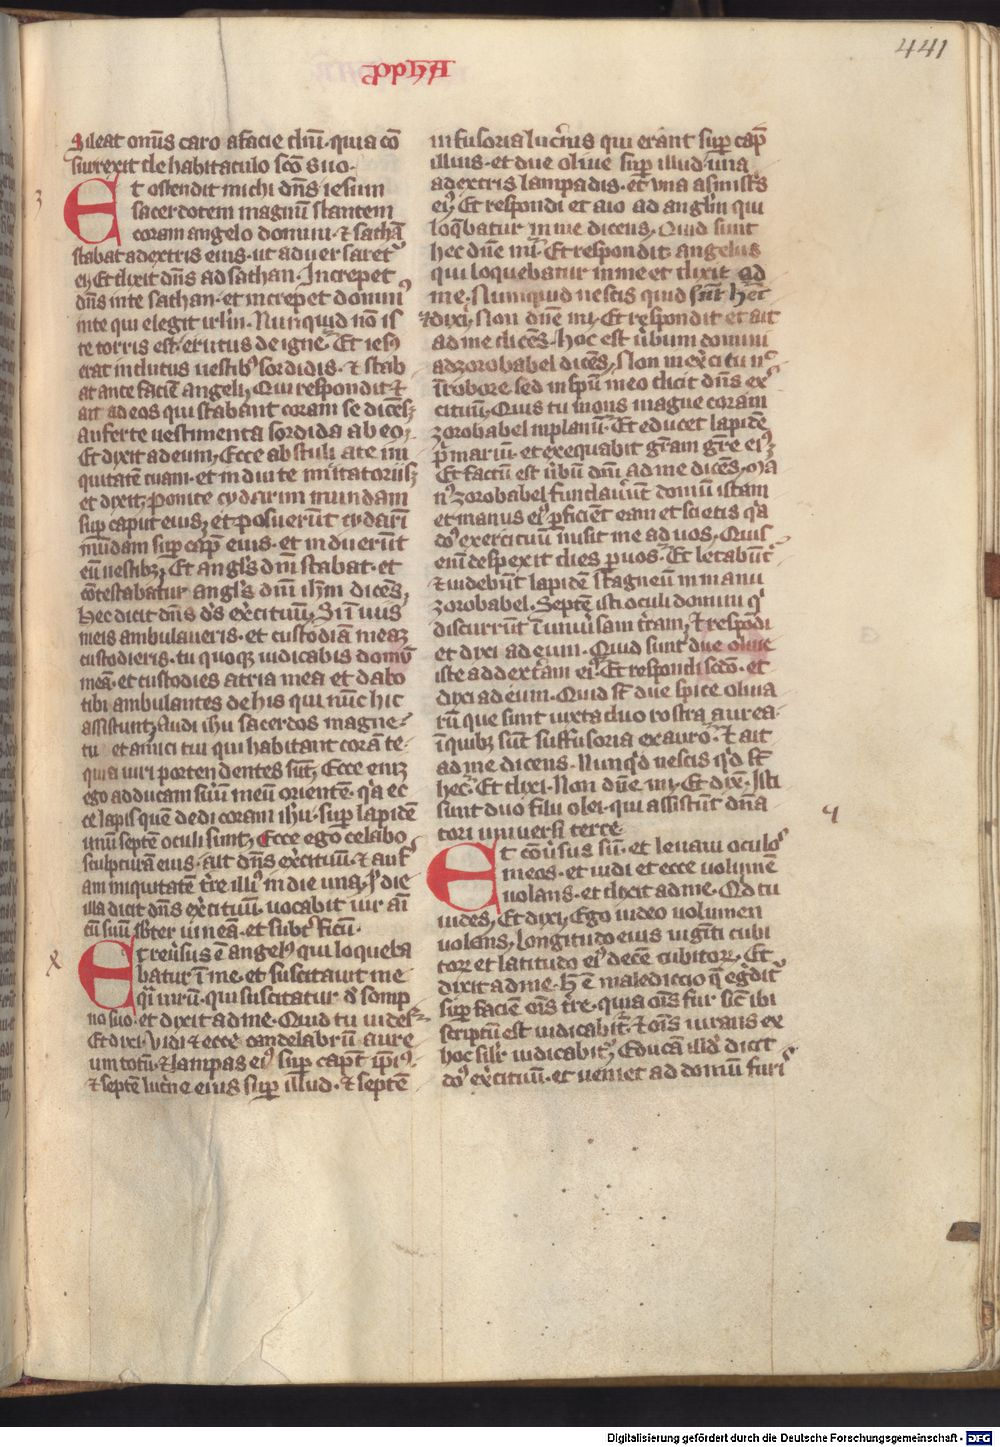 441
ꝓphA
Sileat omīs caro afacie dnī·quia cō
surrexit de habitaculo scō suo·
3
Et ostendit michi dn̄s iesum
sacerdotem magnū stantem
coram angelo domini·⁊ sathā
stabat adextris eius·ut aduersaret᷑
ei Et dixit dn̄s ad sathan·Increpet
dn̄s inte sathan·et increpet dominꝰ
inte qui elegit irl̄m·Nunquid nō is
te torris est·erutus de igne·Et iesꝰ
erat indutus uestibꝰ sordidis·⁊ stab
at ante faciē angeli Qui respondit ⁊
ait adeos qui stabant coram se dicēs
auferte uestimenta sordida ab eo
Et dixit adeum Ecce abstuli ate ini
quitatē tuam·et indui te mutatoriis
et dixit ponite cydarim mundam
suꝑ caput eius et posuerūt cydarī
mūdam suꝑ cap̄ eius·et induerūt
eū uestibꝫ Et angl̄s dnī stabat·et
cōtestabatur angl̄s dnī ih̄m dicēs
Hec dicit dn̄s d̄s ex̄cituū Si ī uus
meis ambulaueris·et custodiā meaꝫ
custodieris·tu quoqꝫ iudicabis domū
meā·et custodies atria mea et dabo
tibi ambulantes de his qui nūc hic
assistunt Audi ihu sacerdos magne
tu et amici tui qui habitant corā te·
quia uiri portendentes sūt Ecce eniꝫ
ego adducam suū meū orientē·q̇a ec
ce lapis quē dedi coram ih̄u·suꝑ lapidē
unū septē oculi sunt Ecce ego celabo
sculpturā eius·ait dn̄s ex̄cituū·⁊ auf̄
am iniquitatē t̄re illiꝰ in die una In die
illa dicit dn̄s ex̄cituū·uocabit uir am̄
cū suū sbter uinea·et subt᷑ ficū·
x
Et reūsus ē angelꝰ qui loqueba
batur ī me·et suscitauit me
q̄i uirū·qui suscitatur d̄ somp
no suo·et dixit ad me·Quid tu uides
Et dixi Vidi ⁊ ecce candelabrū aure
um totū·⁊ lampas eiꝰ suꝑ capt̄ ip̄iꝰ·
⁊ septē luc̄ne eius suꝑ illud·⁊ septē
infusoria luc̄nis qui erānt suꝑ cap̄
illius·et due oliue suꝑ illud·una
adextris lampadis·et vna asinist᷑s
eiꝰ Et respondi et aio ad angl̄m qui
loq̄batur in me dicens·Quid sunt
hec dn̄e mi·Et respondit angelus
qui loquebatur in me et dixit ad
me·Numquid nescis quid sunt hec
⁊ dixi·Non dn̄e mi·Et respondit et ait
ad me dicēs·Hoc est ūbum domini
adzorobabel dicēs Non in ex̄citu nͨ
ī robore sed in spū meo dicit dn̄s exͬ
cituū Quis tu mons magne coram
zorobabel in planū·Et educet lapidē
p̄mariū·et exequabit gr̄am gr̄e eiꝰ
Et factū est ūbū dnī ad me dicēs Ma
nꝰ zorobabel fundauūt domū istam
et manus eiꝰ ꝑficiēt eam et scietis q̇a
dn̄s exercituū misit me ad uos Quis
enī despexit dies ꝑuos Et letabūt᷑
⁊ uidebūt lapidē stagneū in manu
zorobabel Septē isti oculi domini q̇
discurrūt ī uniūsam t̄ram ⁊ respōdi
et dixi ad eum·Quid sunt due oliue
iste ad dext̄am eiꝰ Et respondi scdo·et
dixi ad eum·Quid st̄ due spice oliua
rū que sunt iuxta duo rostra aurea
ī quibꝫ sūt suffusoria ex auro·Et ait
ad me dicens·Nunq̇d nescis q̇d st̄
hec Et dixi·Non dn̄e mi·Et dix̄ Isti
sunt duo filii olei·qui assistūt dn̄a
tori universe terre·
4
Et cōūsus sū·et leuaui oculoꝰ
meos·et uidi et ecce uolumē
uolans·et dixit ad me·Qd̄ tu
uides Et dixi Ego uideo uolumen
uolans longitudo eius uiginti cubi
toꝝ et latitudo eiꝰ decē cubitoꝝ Et
dixit ad me·H̄ ē maledictio q̄ egdit᷑
suꝑ faciē oīs t̄re·quia oīs fur sic̄ ibi
scriptū est iudicabit᷑ ⁊ oīs iurans ex
hoc silr̄ iudicabit᷑ Educā illd̄ dicit
dn̄s ex̄cituū·et ueniet ad domū furiˢ
Digitalisierung gefördert durch die Deutsche Forschungsgemeinschaft - DFG